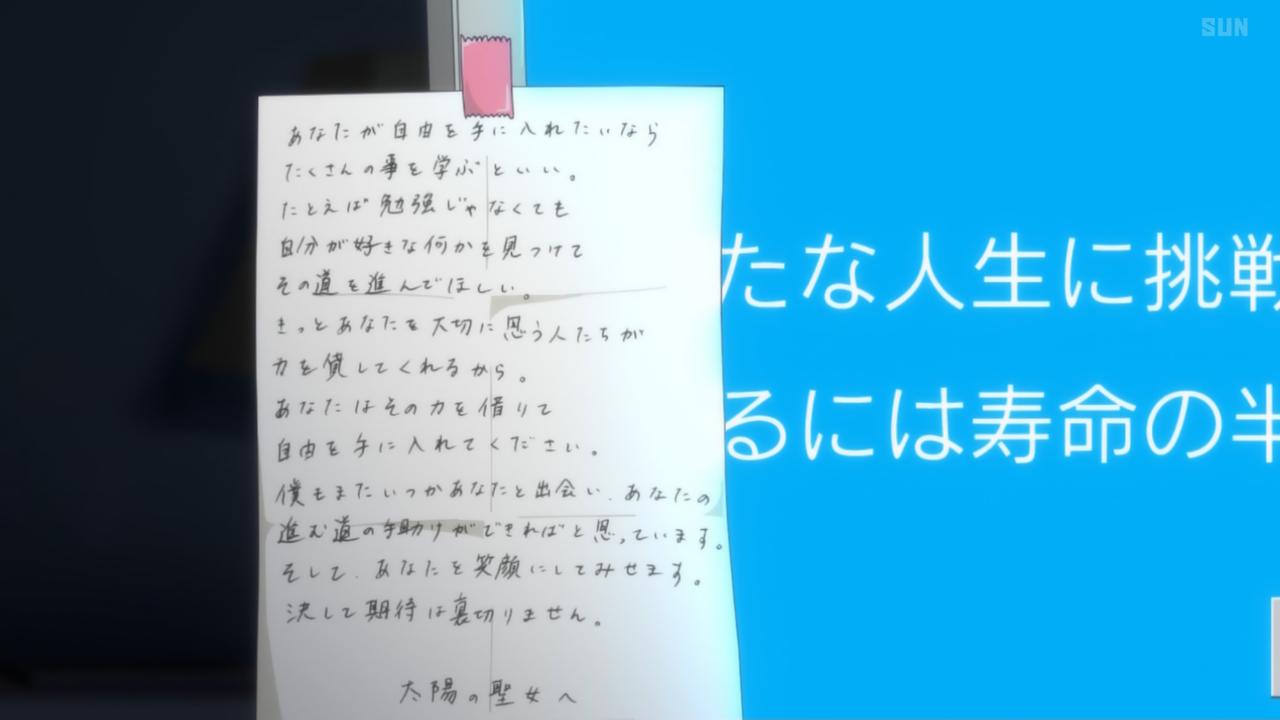 SUN
あなたが自由を手に入れたいなら
たくさんの事を学ぶといい。
たとえば勉強じゃなくても
自分が好きな何かを見つけて
その道を進んでほしい。
きっとあなたを大切に思う人たちが
力を貸してくれるから。
あなたはその力を借りて
自由を手に入れてください。
僕もまたいつかあなたと出会い、あなたの
進む道の手助けができればと思っています。
そして、あなたを笑顔にしてみせます。
決して期待は裏切りません。
太陽の聖女へ
たな人生に挑戦
るには寿命の半